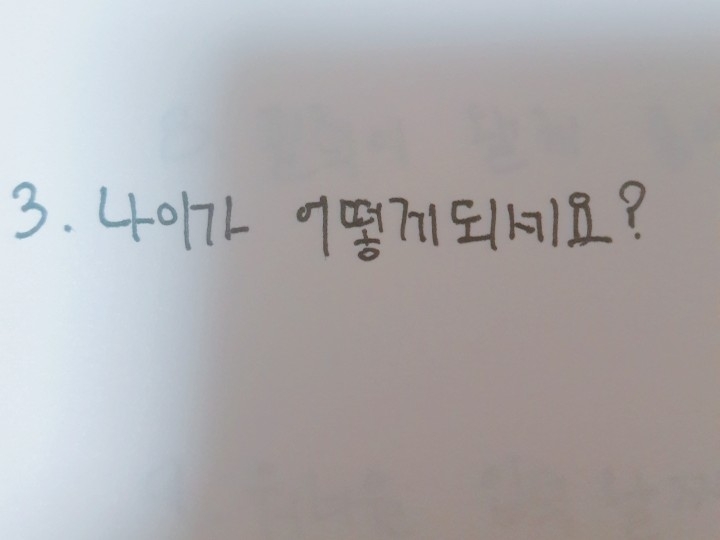 3. 나이가 어떻게되세요?